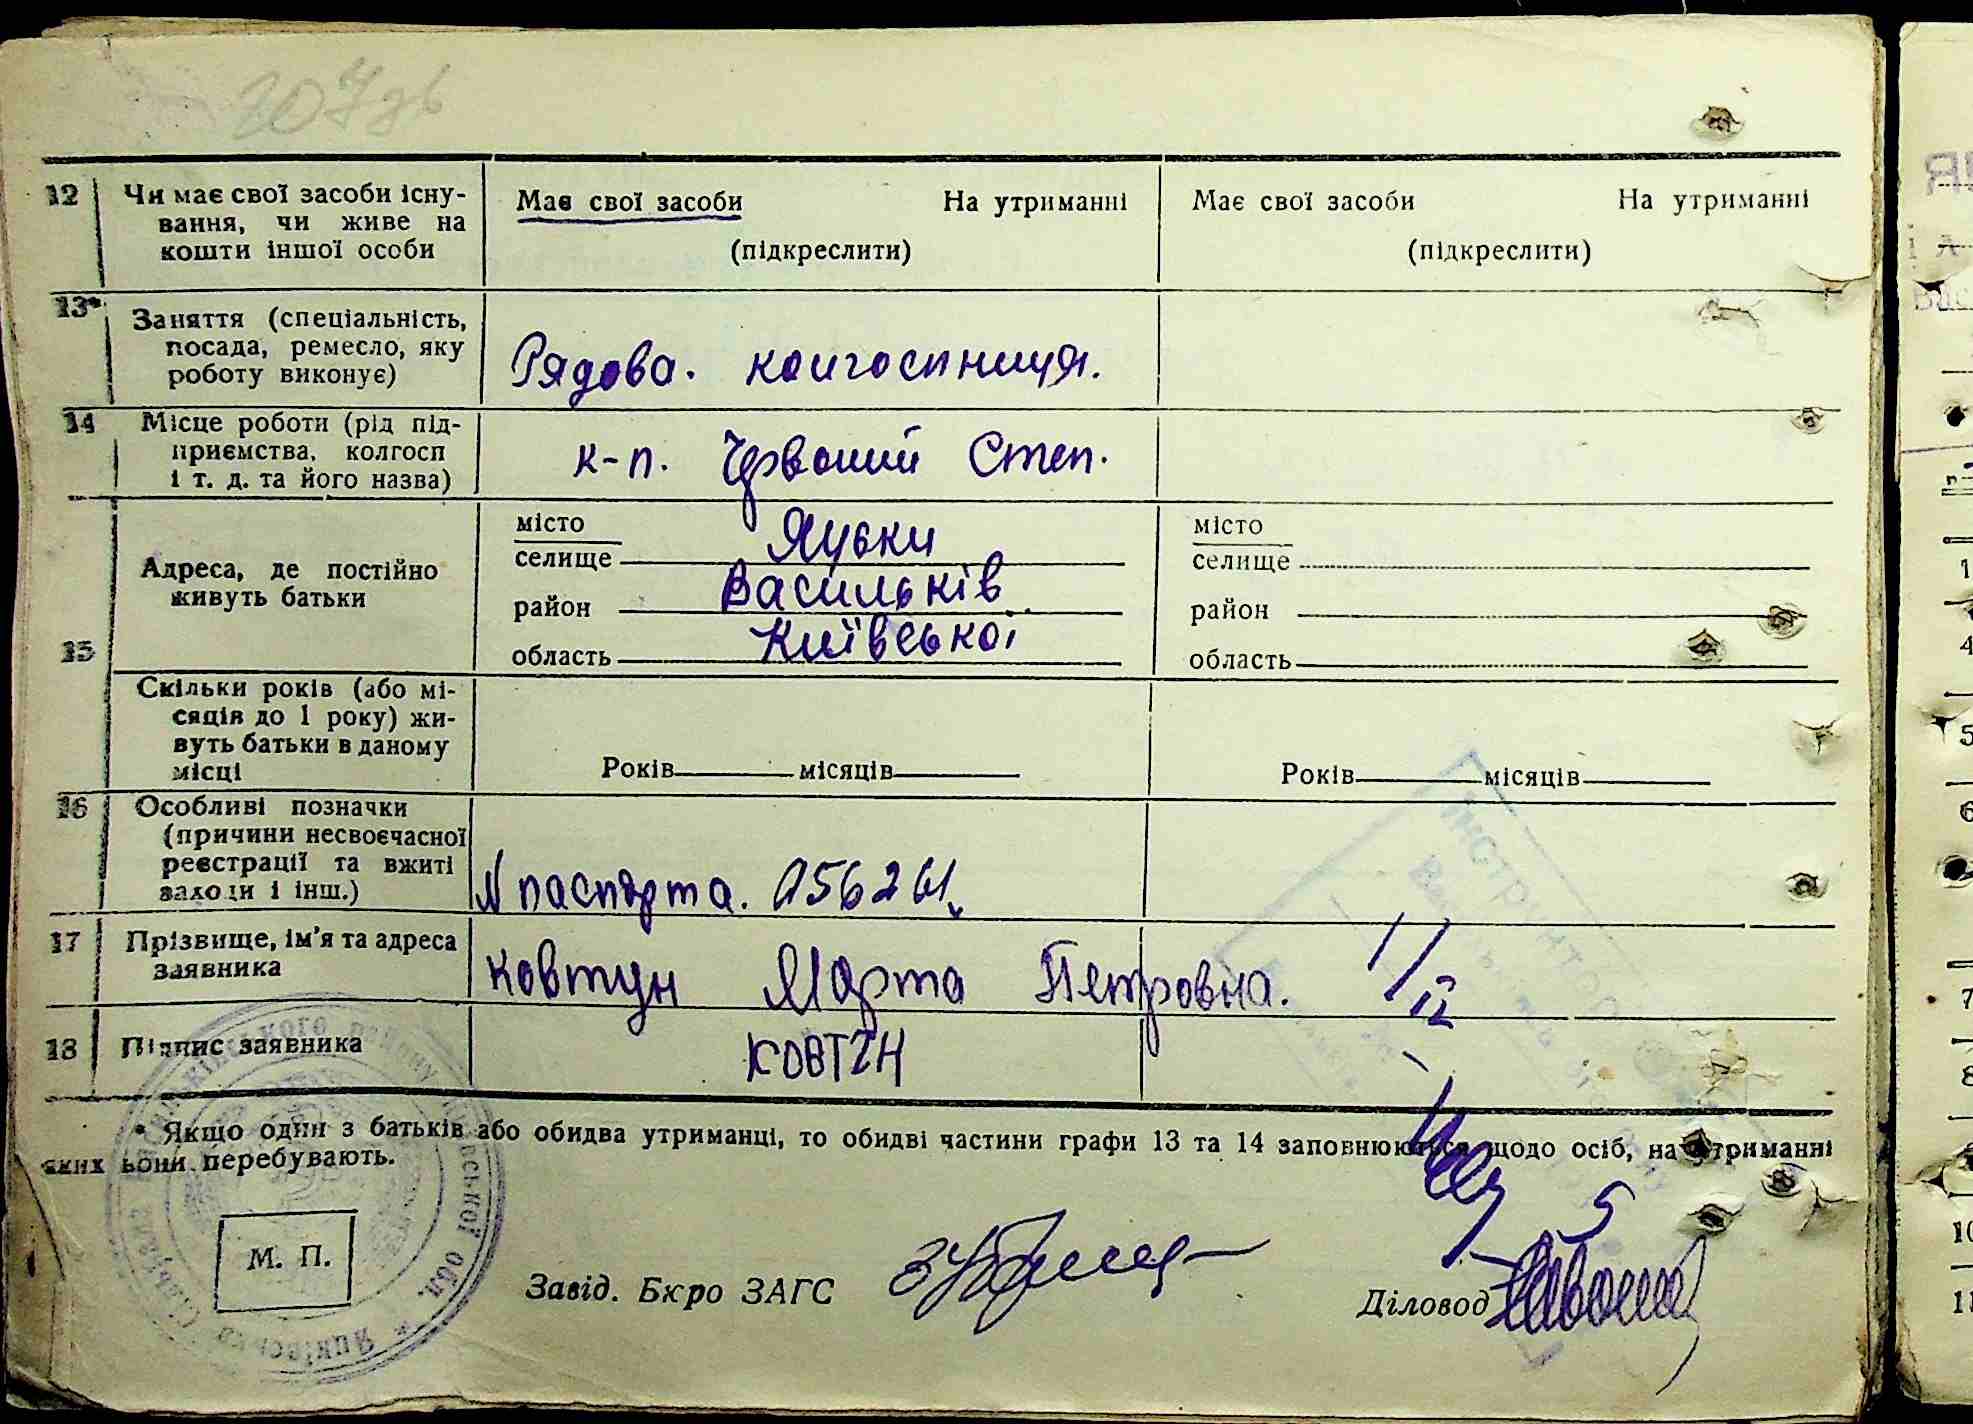 12 Чи має свої засоби існу-
вання, чи живе на
кошти іншої особи
Має свої засоби На утриманні
(підкреслити)
Має свої засоби На утриманні
(підкреслити)
13* Заняття (спеціальність,
посада, ремесло, яку
роботу виконує)
Рядова. колгоспниця.
14 Місце роботи (рід під-
приємства, колгосп
і т. д. та його назва)
к-п. Червоний Степ.
15
Адреса, де постійно
живуть батьки
місто
селище Яцьки
район Васильків
область Київської
місто
селище
район
область
Скільки років (або мі-
сяців до 1 року) жи-
вуть батьки в даному
місці
Років місяців
Років місяців
16 Особливі позначки
(причини несвоєчасної
реєстрації та вжиті
заходи і інш.)
N паспорта. 056261
17 Прізвище, ім'я та адреса
заявника
Ковтун Марта Петровна. 1/12
18 Підпис заявника
КОВТУН
* Якщо один з батьків або обидва утриманці, то обидві частини графи 13 та 14 заповнюються щодо осіб, на утриманні
яких вони перебувають.
М. П.
Завід. Бюро ЗАГС
Діловод